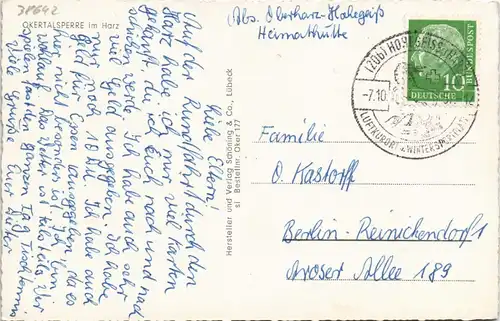 38642
OKERTALSPERRE im Harz
Liebe Eltern!
Auf der Rundfahrt durch den
Harz habe ich nur viel Karten
gekauft, die ich Euch nach und nach
schicken werde. Ich habe auch sehr
viel Geld ausgegeben. Ich habe
nur noch 10 DM. Ich habe auch
Geld für Essen ausgegeben, da es
hier nicht besonders ist. Ich bin
wohlauf. Das Wetter ist Wir
spielen fast den ganzen Tag Tischtennis
Viele Grüße Euer Dieter
Hersteller und Verlag Schöning & Co., Lübeck
si Bestellnr. Oker 177
Abs. Oberharz-Hohegeiß
Heimathütte
(20b) HOHEGEISS
-7.10.
LUFTKURORT WINTERSPORTPLATZ
DEUTSCHE BUNDESPOST
10
Familie
O. Kastorff
Berlin-Reinickendorf 1
Aroser Allee 189